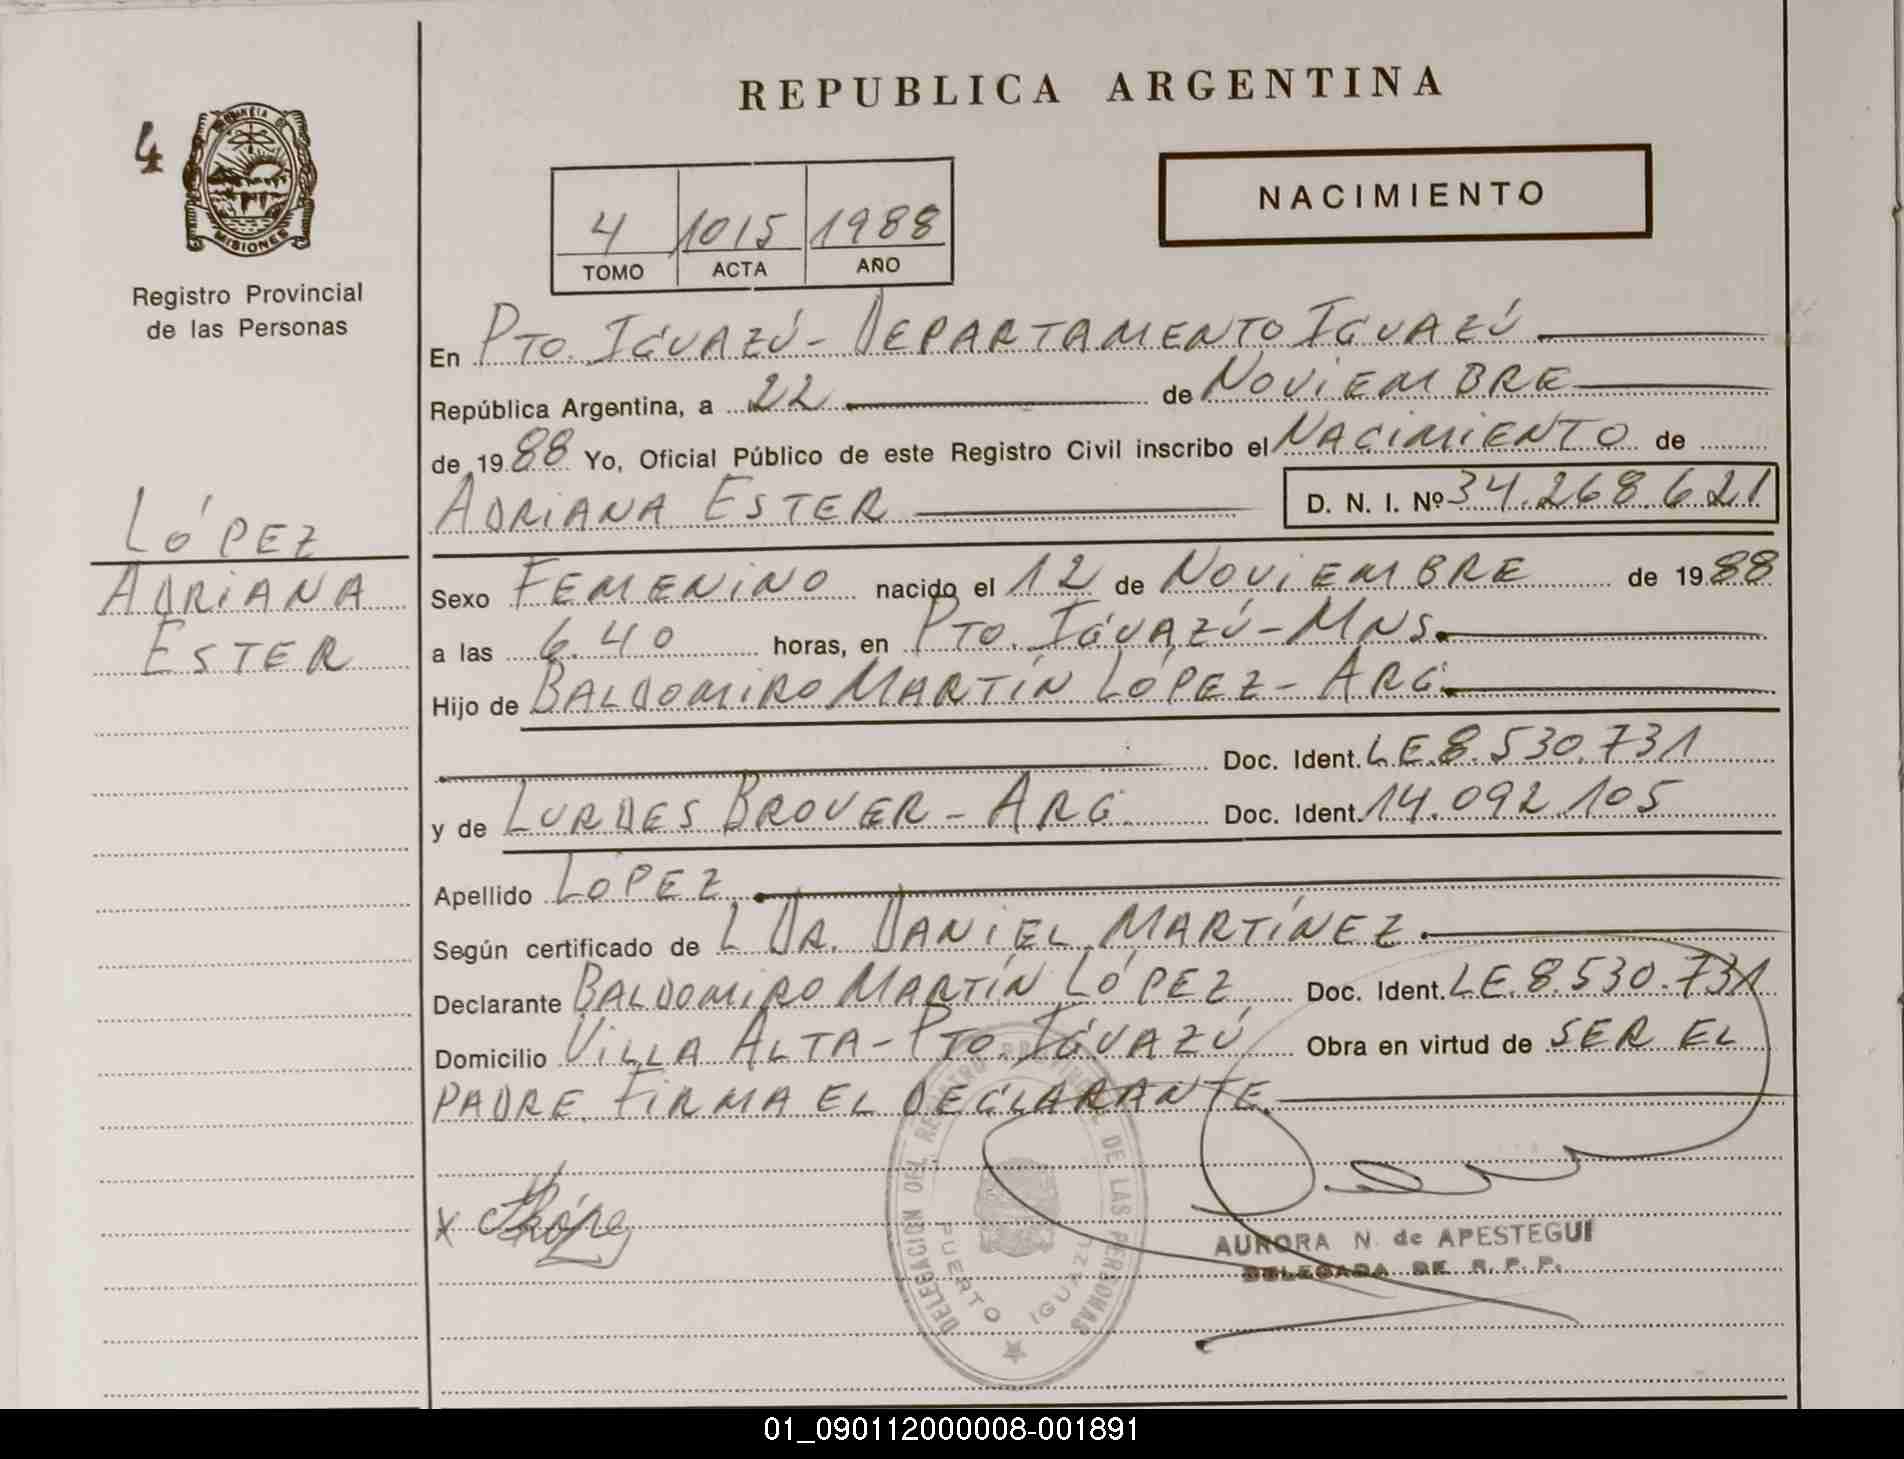 REPUBLICA ARGENTINA
4
PROVINCIA DE
MISIONES
Registro Provincial
de las Personas
4 1015 1988
TOMO ACTA AÑO
NACIMIENTO
En PTO. IGUAZÚ - DEPARTAMENTO IGUAZÚ
República Argentina, a 22 de NOVIEMBRE
de 1988 Yo, Oficial Público de este Registro Civil inscribo el NACIMIENTO de
ADRIANA ESTER D. N. I. Nº 34.268.621
LÓPEZ
ADRIANA
ESTER
Sexo FEMENINO nacido el 12 de NOVIEMBRE de 1988
a las 6.40 horas, en PTO. IGUAZÚ - MNS.
Hijo de BALDOMIRO MARTÍN LÓPEZ - ARG.
Doc. Ident. LE.8.530.731
y de LURDES BROVER - ARG. Doc. Ident. 14.092.105
Apellido LOPEZ
Según certificado de L DR. DANIEL MARTÍNEZ.
Declarante BALDOMIRO MARTÍN LÓPEZ Doc. Ident. LE.8.530.731
Domicilio VILLA ALTA - PTO. IGUAZÚ Obra en virtud de SER EL
PADRE. FIRMA EL DECLARANTE.
DELEGACION DEL REGISTRO PROVINCIAL DE LAS PERSONAS
PUERTO IGUAZU
x López
AURORA N. de APESTEGUI
DELEGADA DE R. P. P.
01_090112000008-001891